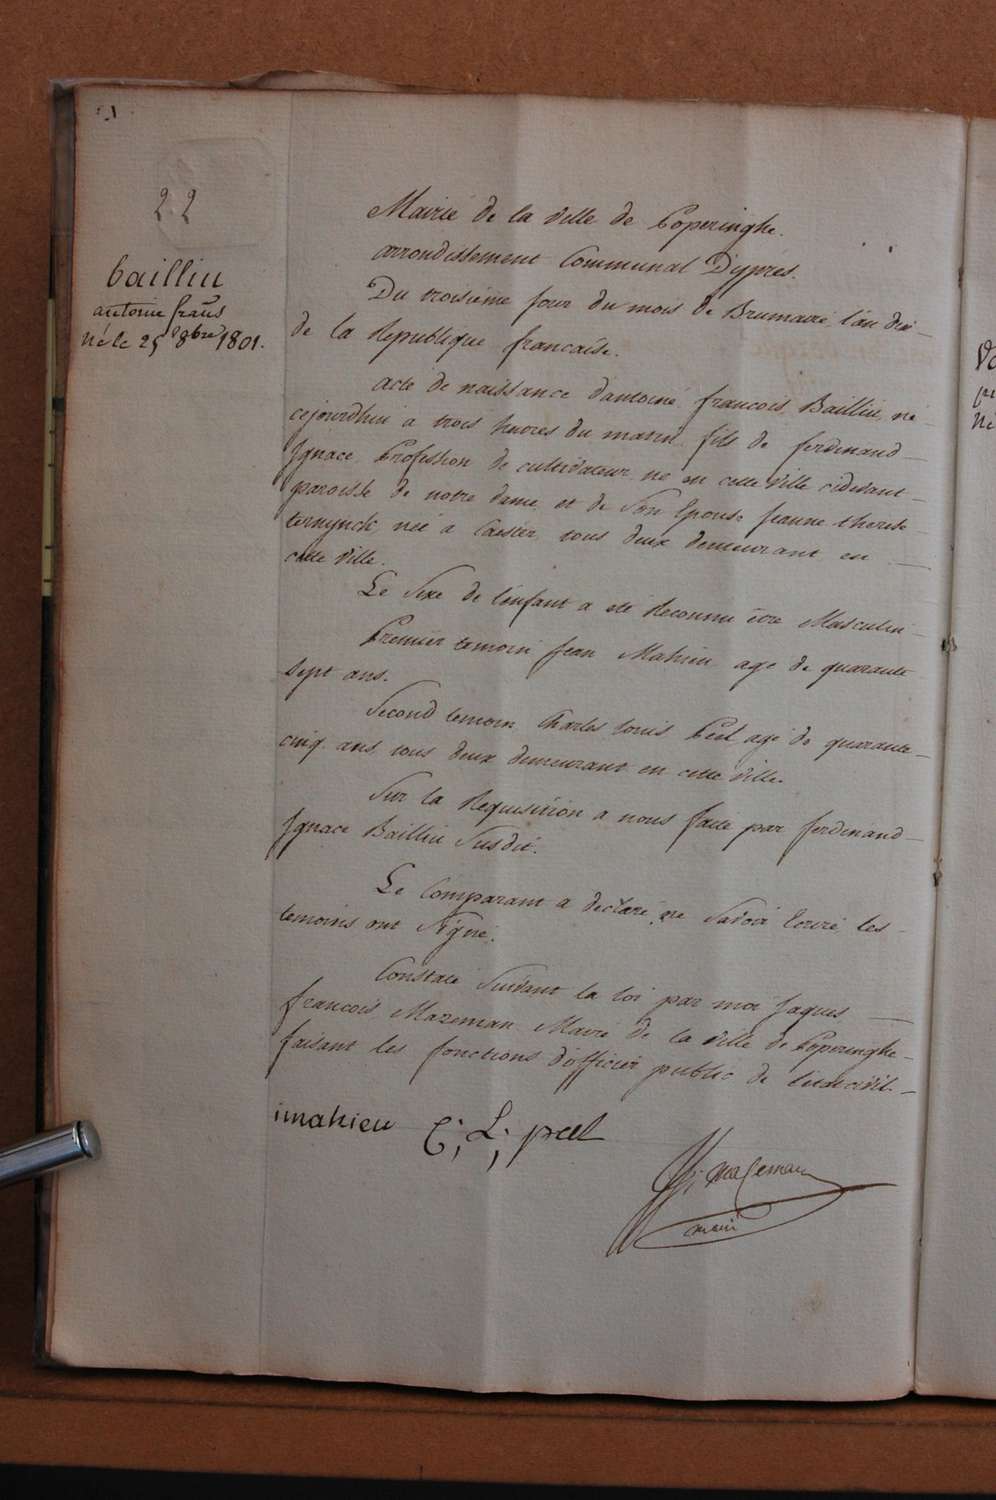 22
Bailliu
antoine frañs
né le 25 8bre 1801.
Mairie de la ville de Poperinghe.
arrondissement Communal D'ypres.
Du troisième jour du mois de Brumaire l'an dix
de la Republique francaise.
acte de naissance d'antoine francois Bailliu, né
cejourdhui a trois heures du matin fils de ferdinand
Ignace Profession de cultivateur né en cette ville cidevant
paroisse de notre dame et de son Epouse jeanne therese
ternynck née a Caester tous deux demeurant en
cette ville.
Le Sexe de l'enfant a eté Reconnu être Masculin
Premier temoin Jean Mahieu agé de quarante
sept ans.
Second temoin Charles louis Peel agé de quarante
cinq ans tous deux demeurant en cette ville.
Sur la Requisition a nous faite par ferdinand
Ignace Bailliu Susdit.
Le Comparant a declaré ne Savoir Ecrire les
temoins ont Signé.
Constaté Suivant la loi par moi Jaques
francois Mazeman Maire de la ville de Poperinghe
faisant les fonctions d'officier public de l'etat civil.
imahieu C; L; peel
mazeman
maire
né